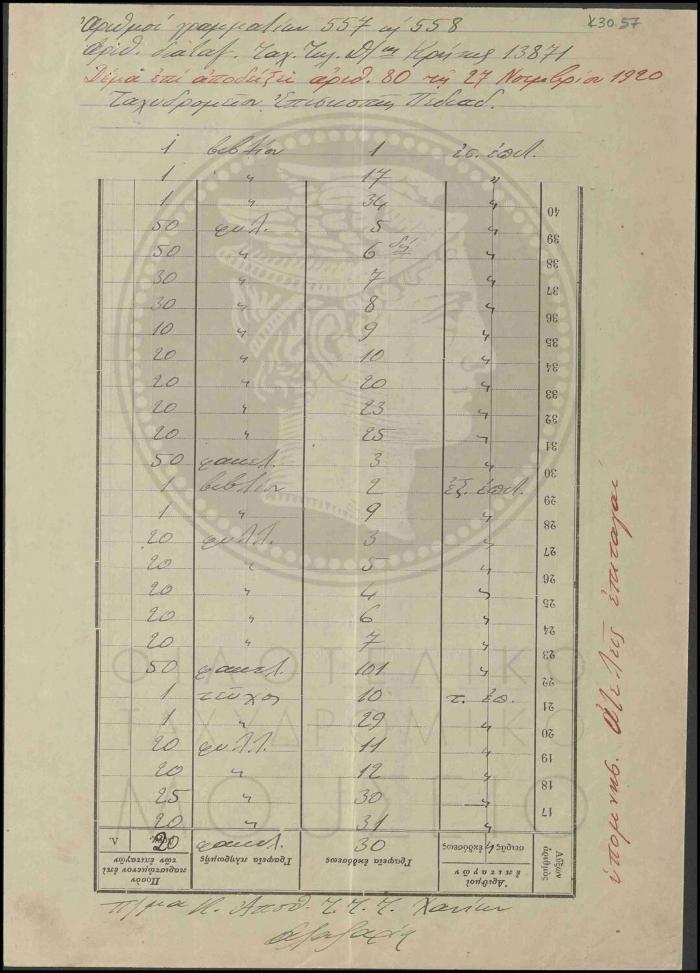 Κ30.57
Ἀριθμοί γραμματίων 557 ἢ 558
Ἀριθ. διαταγ. Ταχ. Τηλ. Δ/σης Κρήτης 13871
ἐπί ἀποδείξει ἀριθ. 80 τῆς 27 Νοεμβρίου 1920
Ταχυδρομεῖον Ἐπισκοπῆς Πεδιάδ.
1 βιβλίον 1 ἐσ. ἐπιτ.
1 " 17 "
1 " 34 "
50 φύλ. 5 "
50 " 6 "
30 " 7 "
30 " 8 "
10 " 9 "
20 " 10 "
20 " 20 "
20 " 23 "
20 " 25 "
50 φακελ. 3 "
1 βιβλίον 2 ἐξ. ἐπιτ.
1 " 9 "
20 φύλλ. 3 "
20 " 5 "
20 " 4 "
20 " 6 "
20 " 7 "
50 φακελ. 101 "
1 τεῦχος 10 τ. ἐπ.
1 " 29 "
20 φύλλ. 11 "
20 " 12 "
25 " 30 "
20 " 31 "
20 φακελ. 30 "
40
39
38
37
36
35
34
33
32
31
30
29
28
27
26
25
24
23
22
21
20
19
18
17
Αὔξων ἀριθμός
Ἀριθμοί ἐπιταγῶν
σειρᾶς ἐκδόσεως
Γραφεῖα ἐκδόσεως
Γραφεῖα πληρωμῆς
Ποσὸν παριστώμενον ἐπὶ τῶν ἐπιταγῶν
Λ.
ΦΙΛΟΤΕΛΙΚΟ
ΤΑΧΥΔΡΟΜΙΚΟ
ΜΟΥΣΕΙΟ
Τ. Τ. Τ. Χανίων
ἐπιταγαί